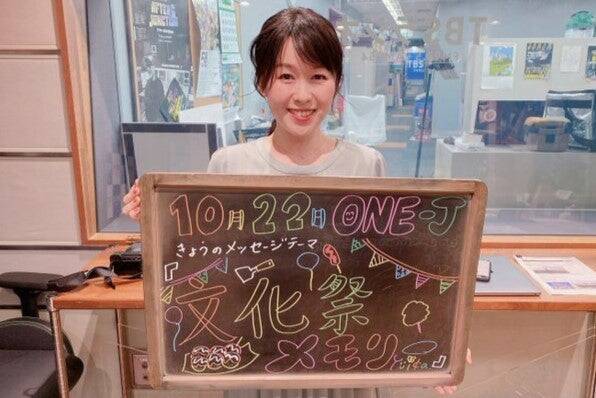 10月22日 ONE-J
きょうのメッセージテーマ
『文化祭
メモリー』
TBS
TBS